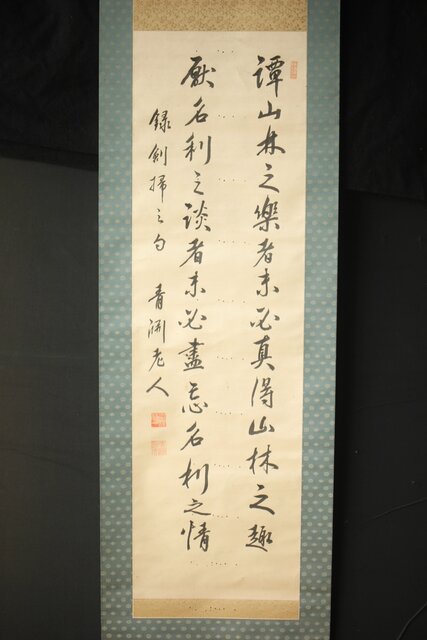 譚山林之樂者未必真得山林之趣
厭名利之談者未必盡忘名利之情
録劍掃之句　青淵老人